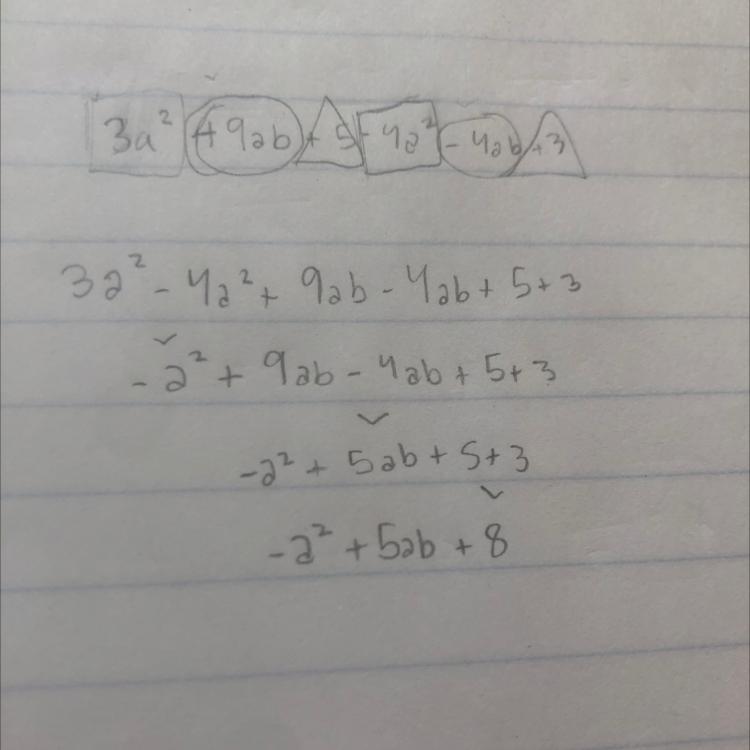 3a² + 9ab + 5 - 4a² - 4ab + 3
3a² - 4a² + 9ab - 4ab + 5 + 3
-a² + 9ab - 4ab + 5 + 3
-a² + 5ab + 5 + 3
-a² + 5ab + 8